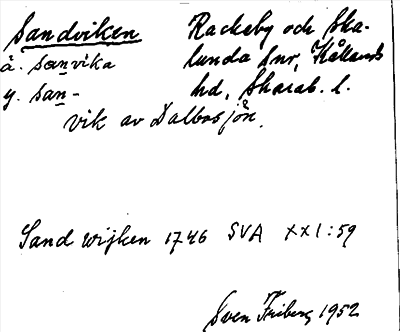 Sandviken Rackeby och Ska-
å. sanvika lunda snr, Kållands
y. san- hd, Skarab. l.
vik av Dalbosjön.
Sand wijken 1746 SVA XXI:59
Sven Friberg 1952